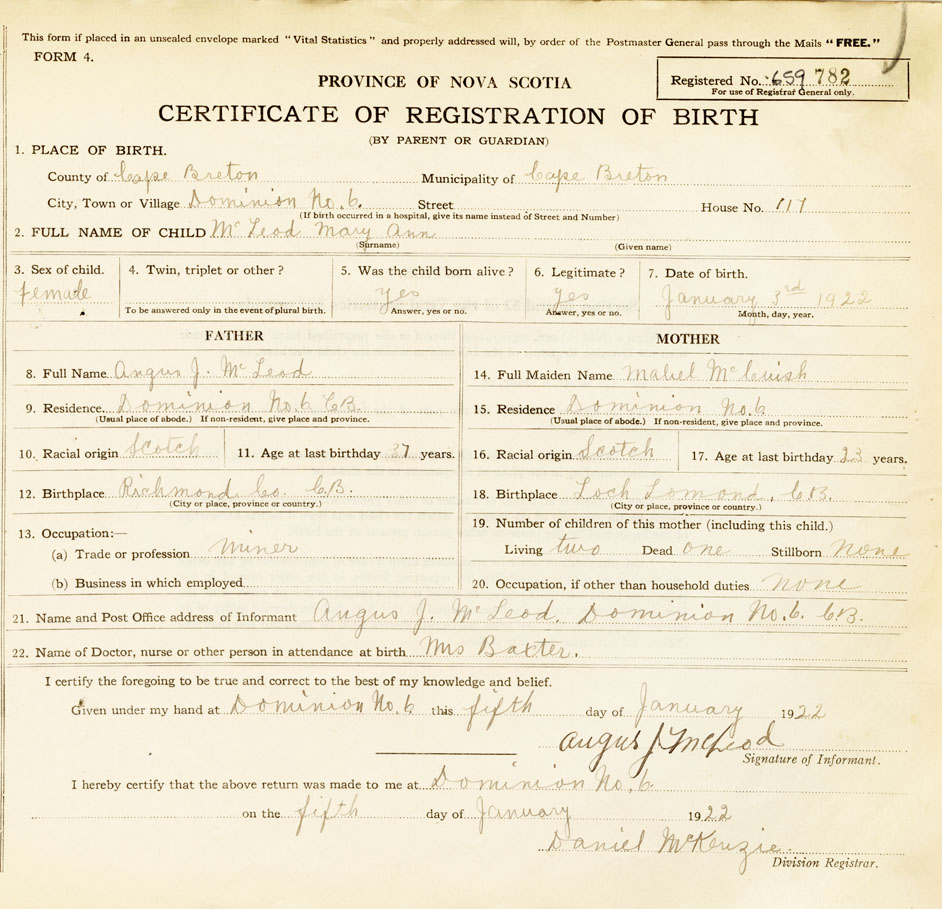 This form if placed in an unsealed envelope marked "Vital Statistics" and properly addressed will, by order of the Postmaster General pass through the Mails "FREE."
FORM 4.
PROVINCE OF NOVA SCOTIA
Registered No. 659 782
For use of Registrar General only.
CERTIFICATE OF REGISTRATION OF BIRTH
(BY PARENT OR GUARDIAN)
1. PLACE OF BIRTH.
County of Cape Breton Municipality of Cape Breton
City, Town or Village Dominion No. 6. Street House No. 117
(If birth occurred in a hospital, give its name instead of Street and Number)
2. FULL NAME OF CHILD McLeod Mary Ann
(Surname) (Given name)
3. Sex of child. 4. Twin, triplet or other? 5. Was the child born alive? 6. Legitimate? 7. Date of birth.
female yes yes January 3rd 1922
To be answered only in the event of plural birth. Answer, yes or no. Answer, yes or no. Month, day, year.
FATHER
8. Full Name Angus J. McLeod
9. Residence. Dominion No. 6 C.B.
(Usual place of abode.) If non-resident, give place and province.
10. Racial origin Scotch 11. Age at last birthday 37 years.
12. Birthplace Richmond Co. C.B.
(City or place, province or country.)
13. Occupation:—
(a) Trade or profession miner
(b) Business in which employed
MOTHER
14. Full Maiden Name Mabel McCuish
15. Residence Dominion No. 6
(Usual place of abode.) If non-resident, give place and province.
16. Racial origin Scotch 17. Age at last birthday 23 years.
18. Birthplace Loch Lomond, C.B.
(City or place, province or country.)
19. Number of children of this mother (including this child.)
Living two Dead one Stillborn none
20. Occupation, if other than household duties none
21. Name and Post Office address of Informant Angus J. McLeod. Dominion No. 6. C.B.
22. Name of Doctor, nurse or other person in attendance at birth Mrs Baxter.
I certify the foregoing to be true and correct to the best of my knowledge and belief.
Given under my hand at Dominion No. 6 this fifth day of January 1922
Angus J McLeod
Signature of Informant.
I hereby certify that the above return was made to me at Dominion No. 6.
on the fifth day of January 1922
Daniel McKenzie.
Division Registrar.